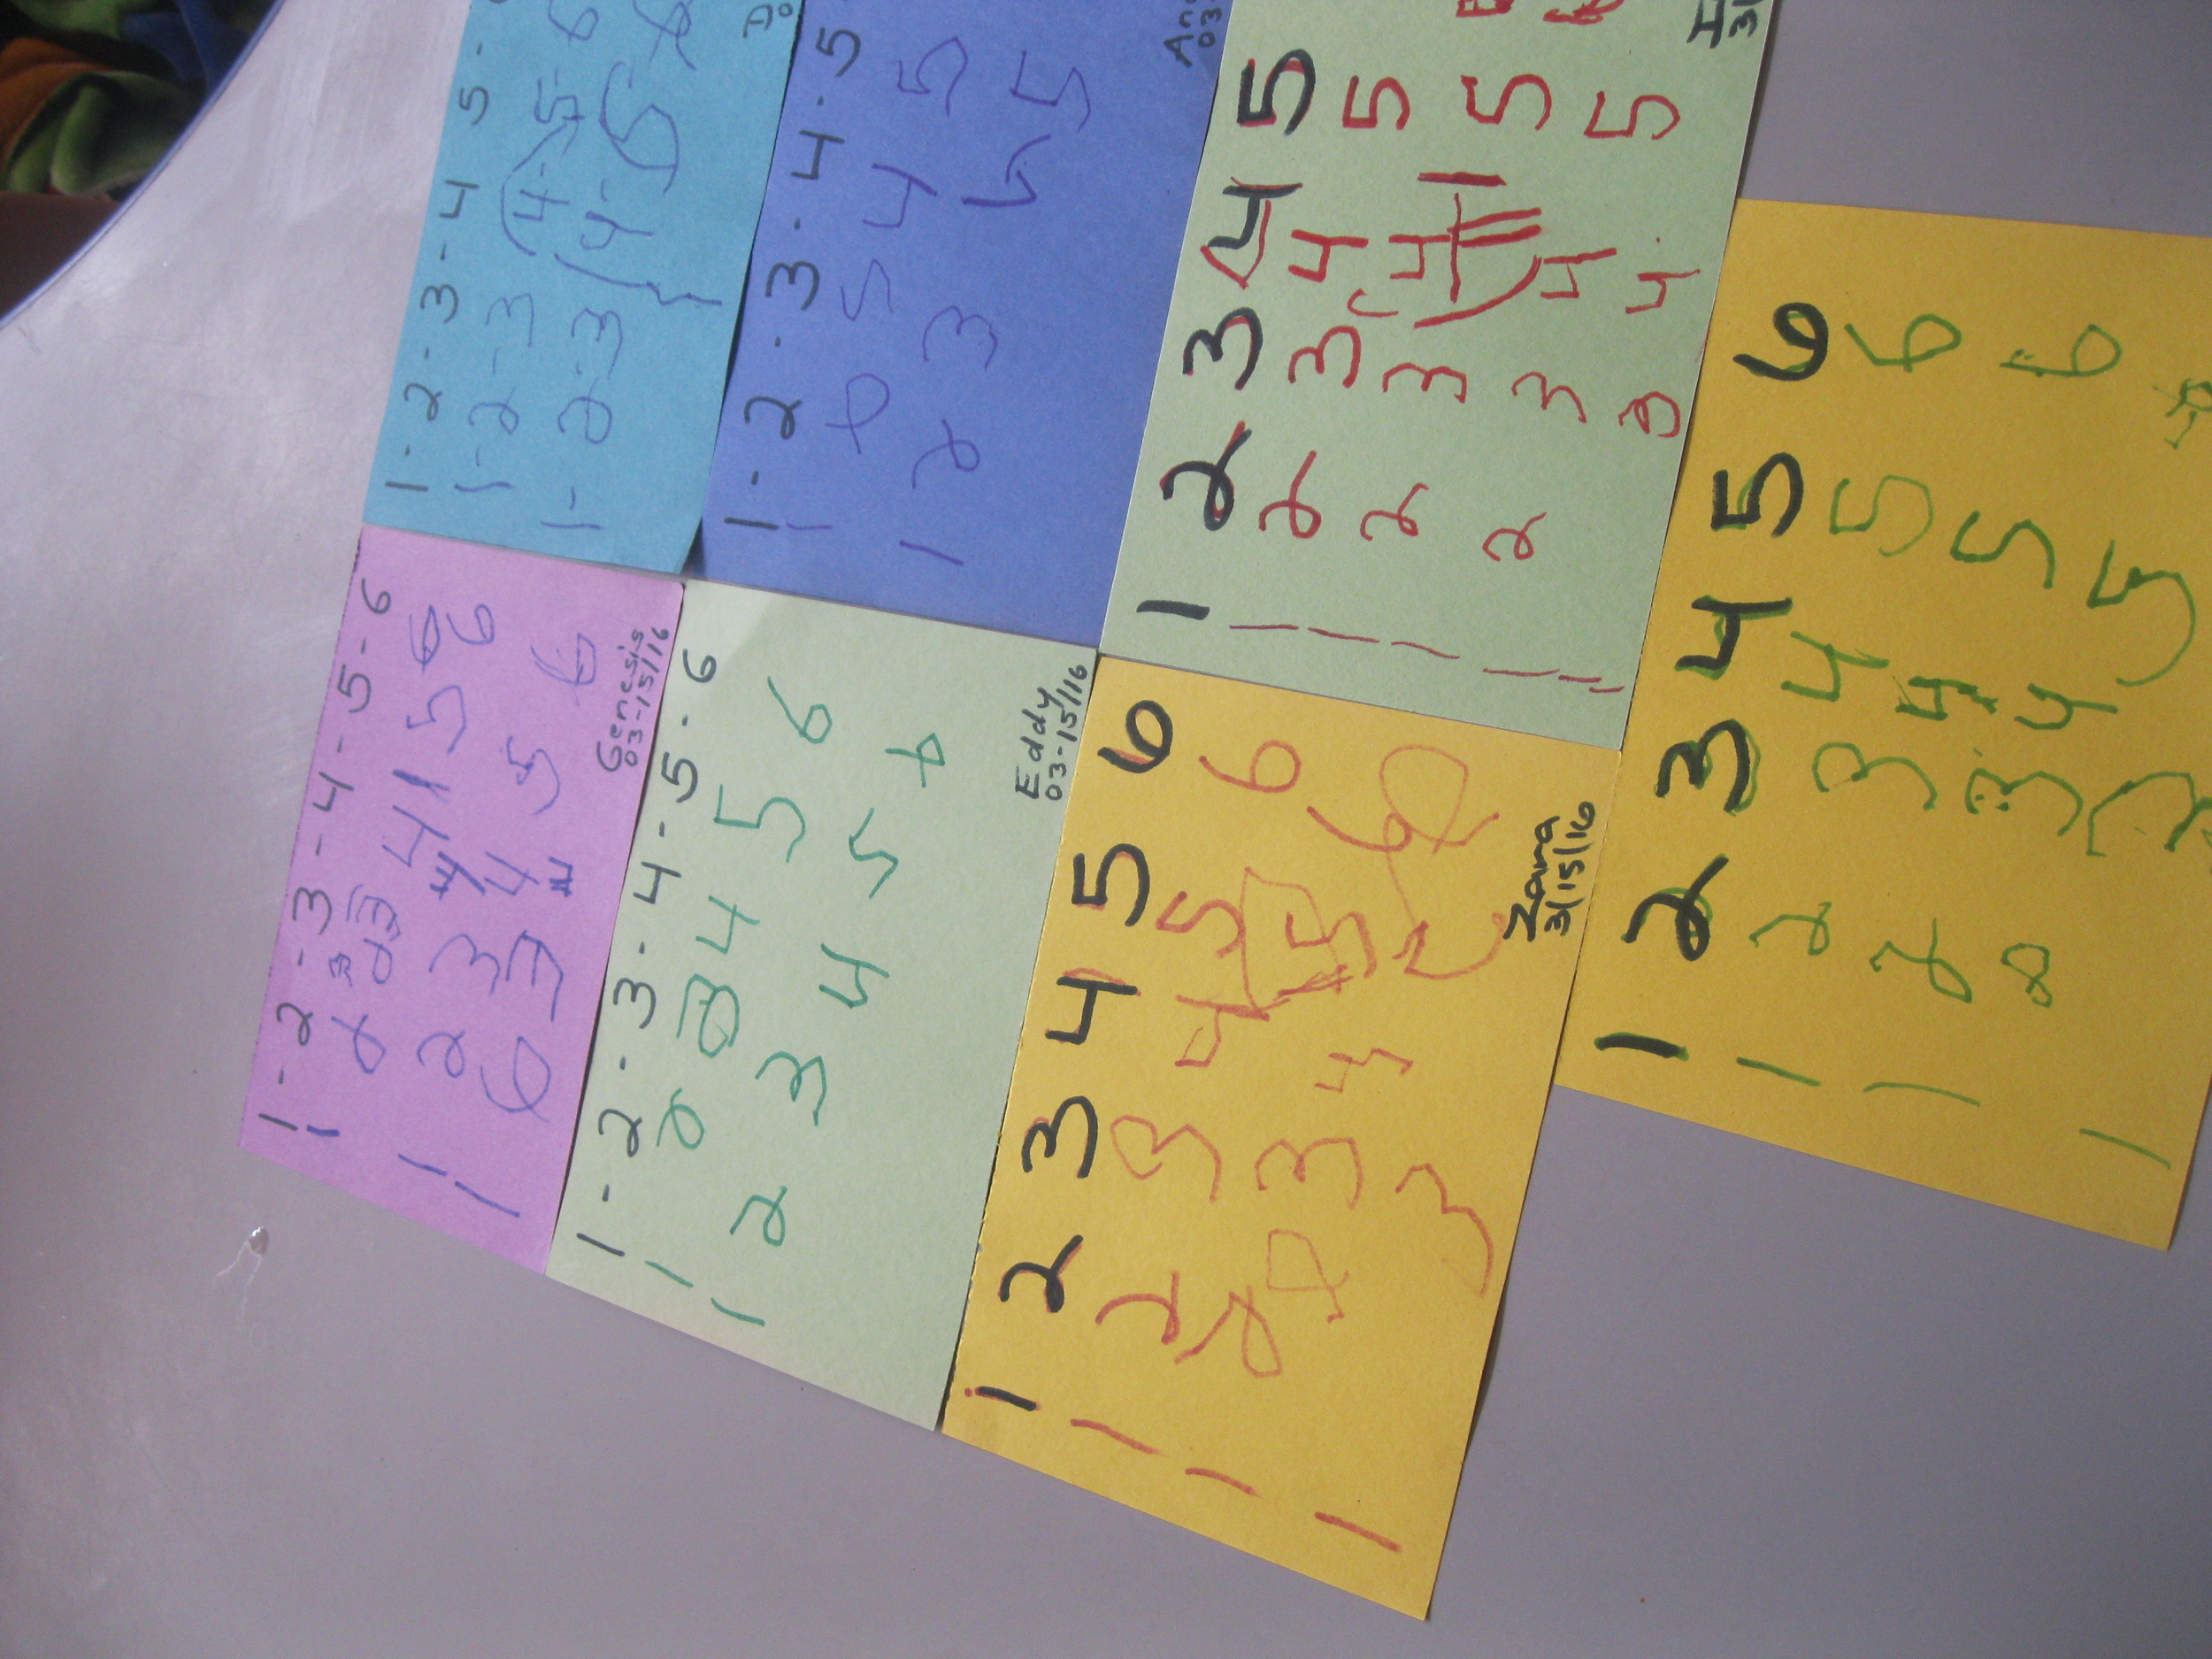 1-2-3-4-5-6
1 2 3 4 5 6
1 2 3 4 5 6
1 3 4 5 6
Genesis
03-15/16
1-2-3-4-5-6
1 2 3 4 5 6
1 2 3 4 5 6
Eddy
03-15/16
1 2 3 4 5 6
1 2 3 4 5 6
1 2 3 4 5 6
1 3
Zara
3/15/16
1-2-3-4-5-
1-2-3 4-5-6
1-2-3 4-5
1-2-3-4-5
1 5 4 5
1 2 3 5
1 2 3 4 5
1 2 3 4 5
1 2 3 4 5
1 2 3 4 5
1 3 4
1 2 3 4 5 6
1 2 3 4 5 6
1 2 3 4 5 6
1 2 3 4 5